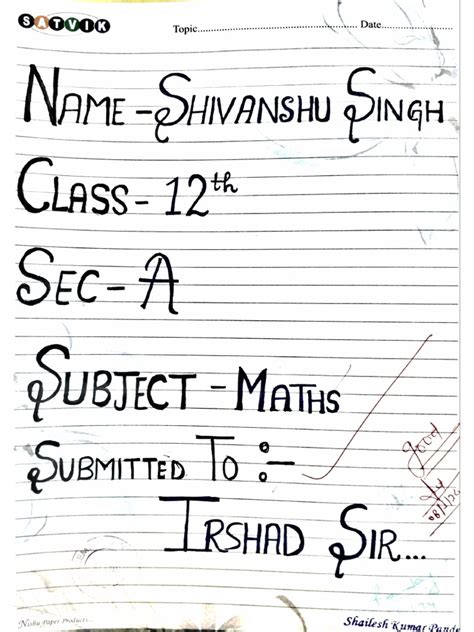 SATVIK
Topic........................ Date............
NAME - SHIVANSHU SINGH
CLASS - 12th
SEC - A
SUBJECT - MATHS
SUBMITTED TO :-
good
IRSHAD SIR...
Nishu Paper Products
Shailesh Kumar Pande